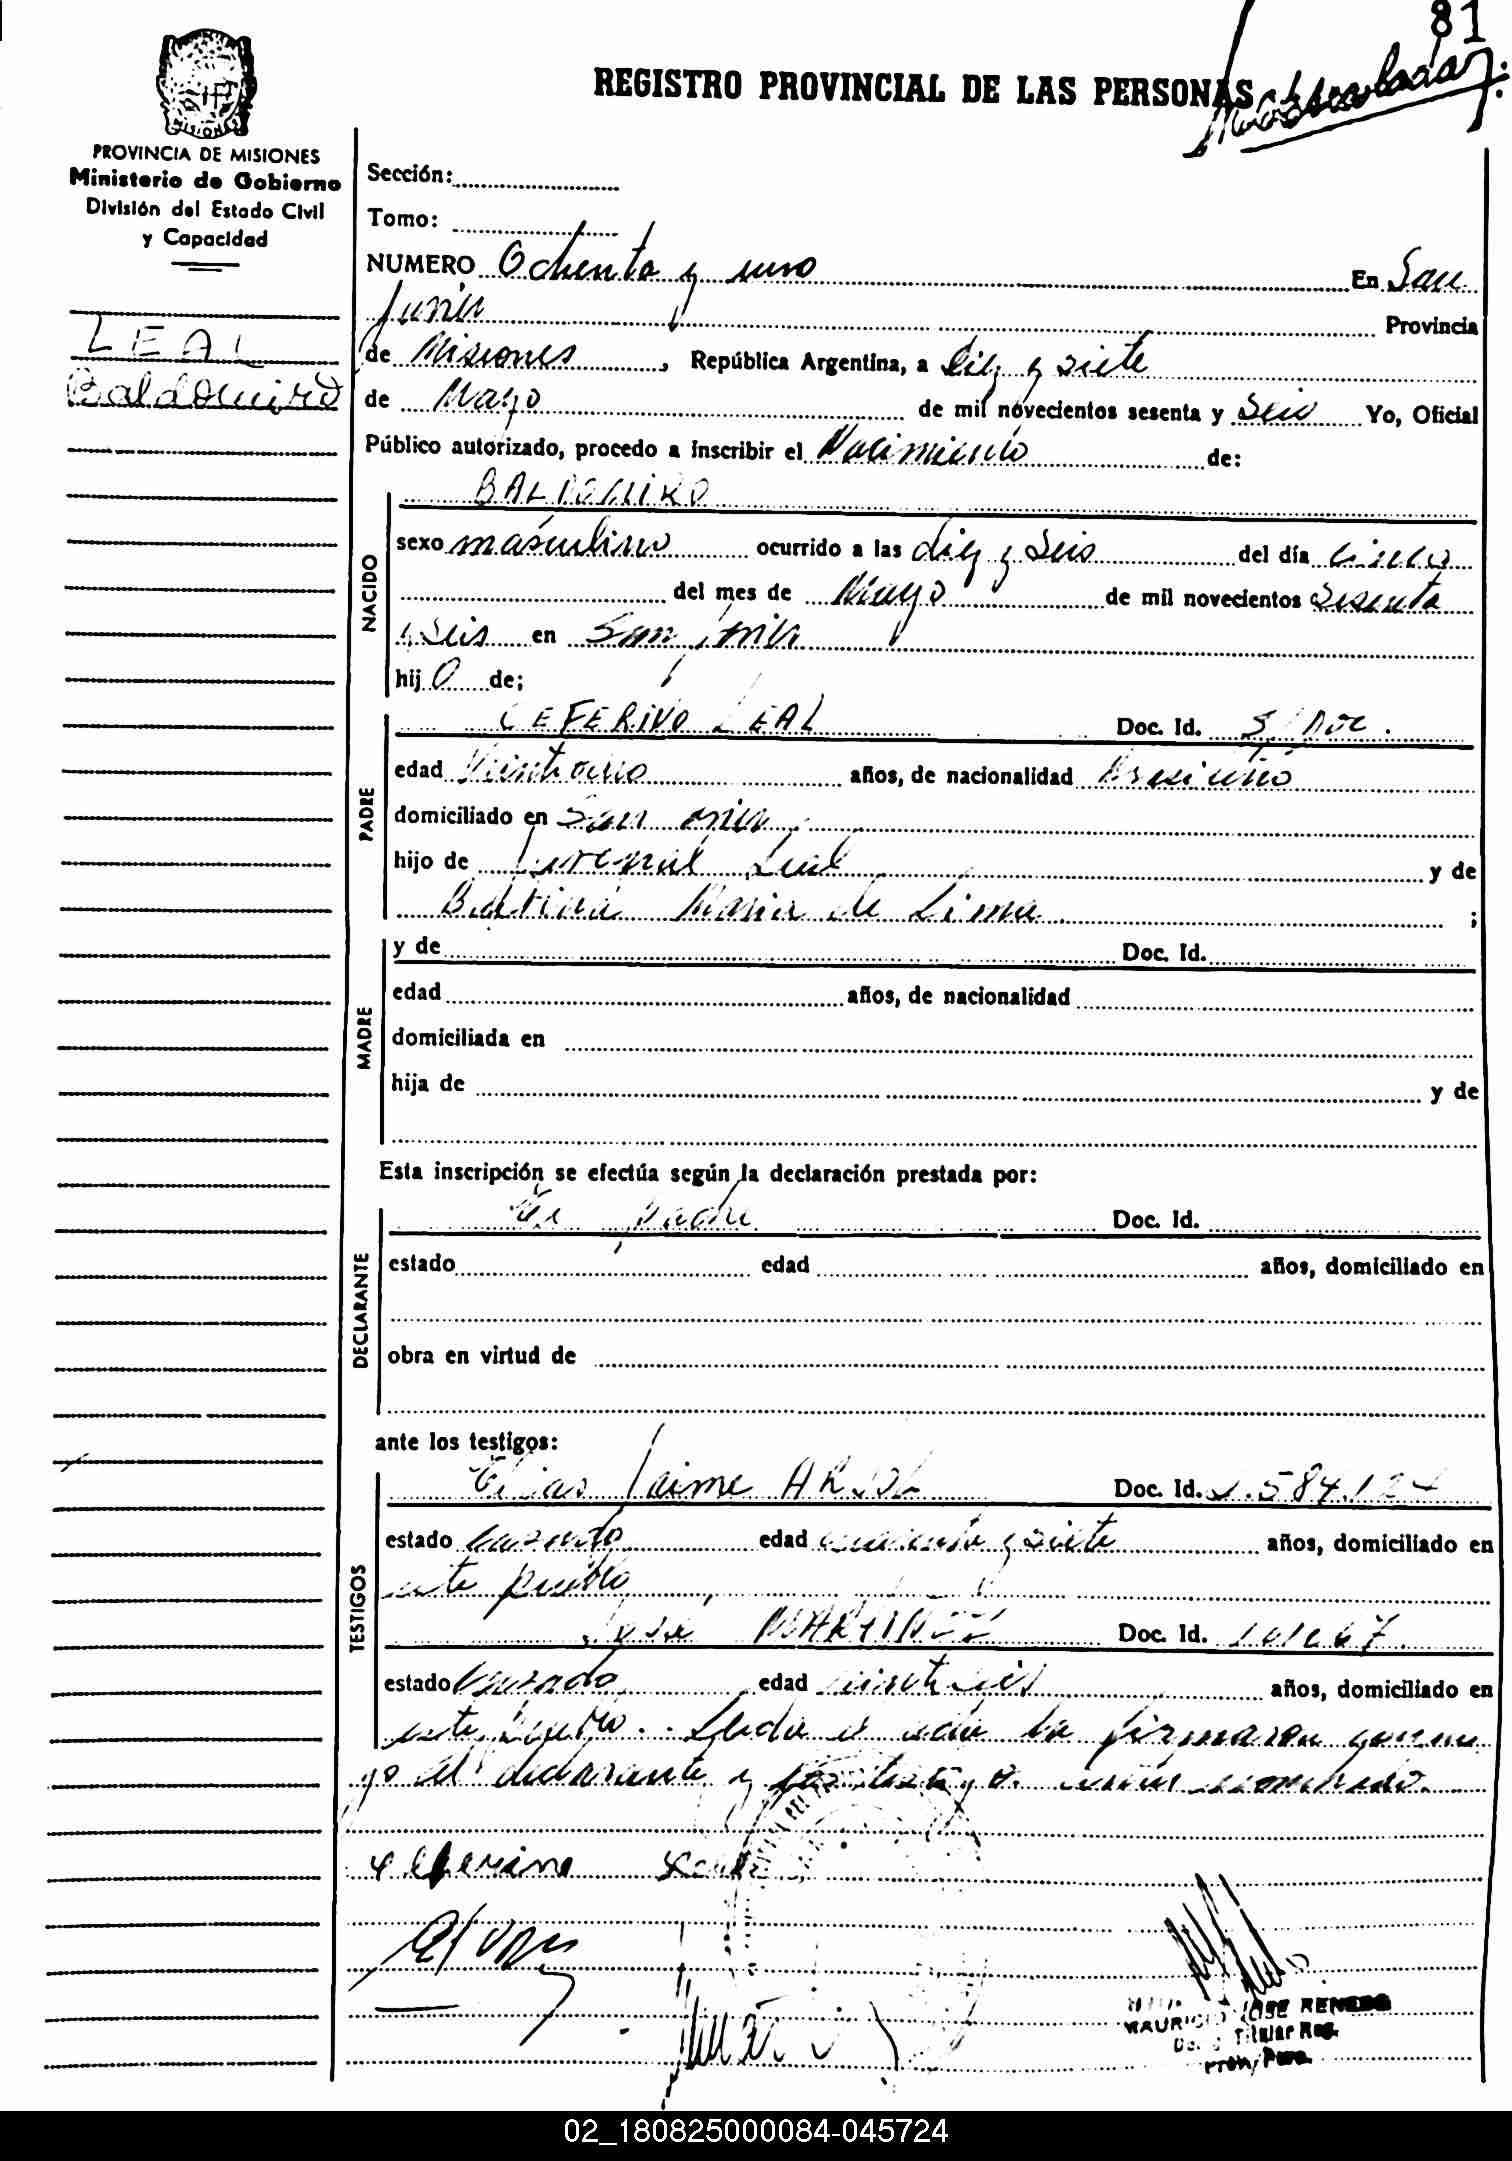 81
REGISTRO PROVINCIAL DE LAS PERSONAS
MISIONES
PROVINCIA DE MISIONES
Ministerio de Gobierno
División del Estado Civil
y Capacidad
LEAL
Baldomiro
Sección:
Tomo:
NUMERO Ochenta y uno En San
Javier Provincia
de Misiones, República Argentina, a diez y siete
de Mayo de mil novecientos sesenta y Seis Yo, Oficial
Público autorizado, procedo a inscribir el Nacimiento de:
NACIDO
BALDOMIRO
sexo masculino ocurrido a las diez y Seis del día cinco
del mes de Mayo de mil novecientos Sesenta
y Seis en San Javier
hijo de;
PADRE
CEFERINO LEAL Doc. Id. S/ Doc.
edad años, de nacionalidad
domiciliado en San Javier
hijo de Leal y de
Maria de Lima ;
MADRE
y de Doc. Id.
edad años, de nacionalidad
domiciliada en
hija de y de
Esta inscripción se efectúa según la declaración prestada por:
DECLARANTE
El padre Doc. Id.
estado edad años, domiciliado en
obra en virtud de
ante los testigos:
TESTIGOS
Elias Jaime Doc. Id.
estado casado edad cuarenta y siete años, domiciliado en
este pueblo
José MARTINEZ Doc. Id.
estado casado edad años, domiciliado en
este pueblo. Leida el acta la firmaron conmi
go el declarante y los testigos
Ceferino Leal
MAURICIO JOSE
Titular Reg.
Prov. Pers.
02_180825000084-045724